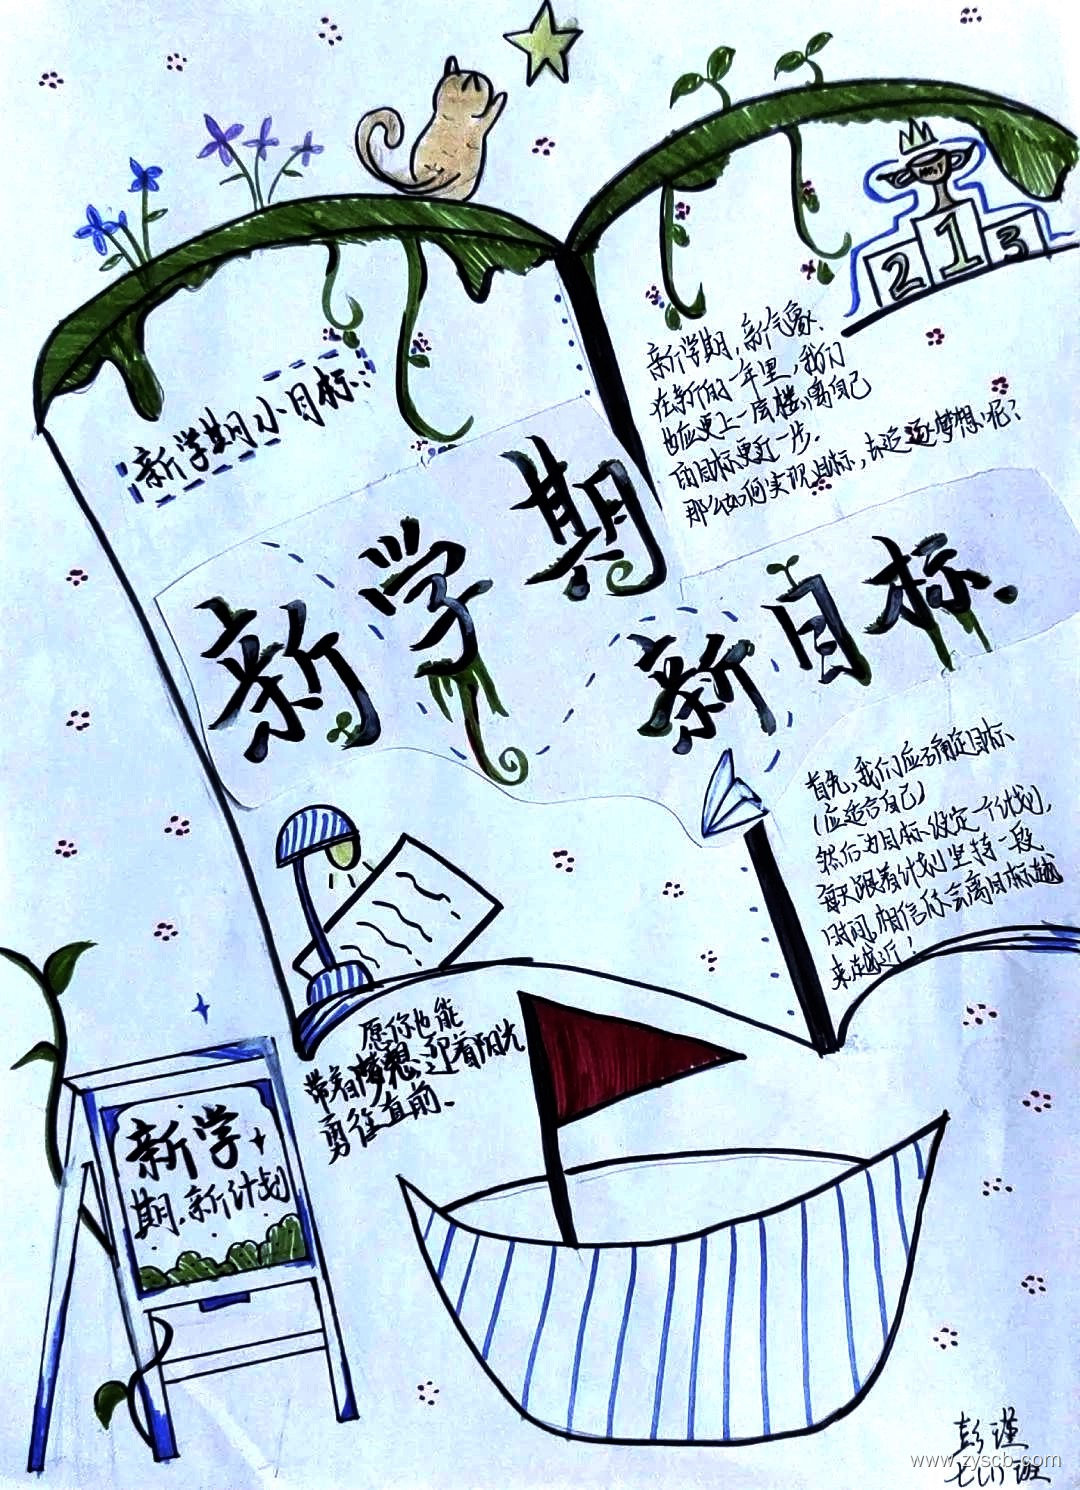 新学期小目标
新学期,新气象,
在新的一年里,我们
也应更上一层楼,离自己
的目标更近一步.
那么如何实现目标,去追逐梦想呢?
新学期
新目标
首先,我们应确定目标
(应适合自己)
然后为目标设定一个计划,
每天跟着计划坚持一段
时间,相信你会离目标越
来越近!
愿你也能
带着梦想迎着阳光
勇往直前.
新学
期.新计划
NO.1
2 1 3
彭瑾
七(1)班
www.zyscb.com